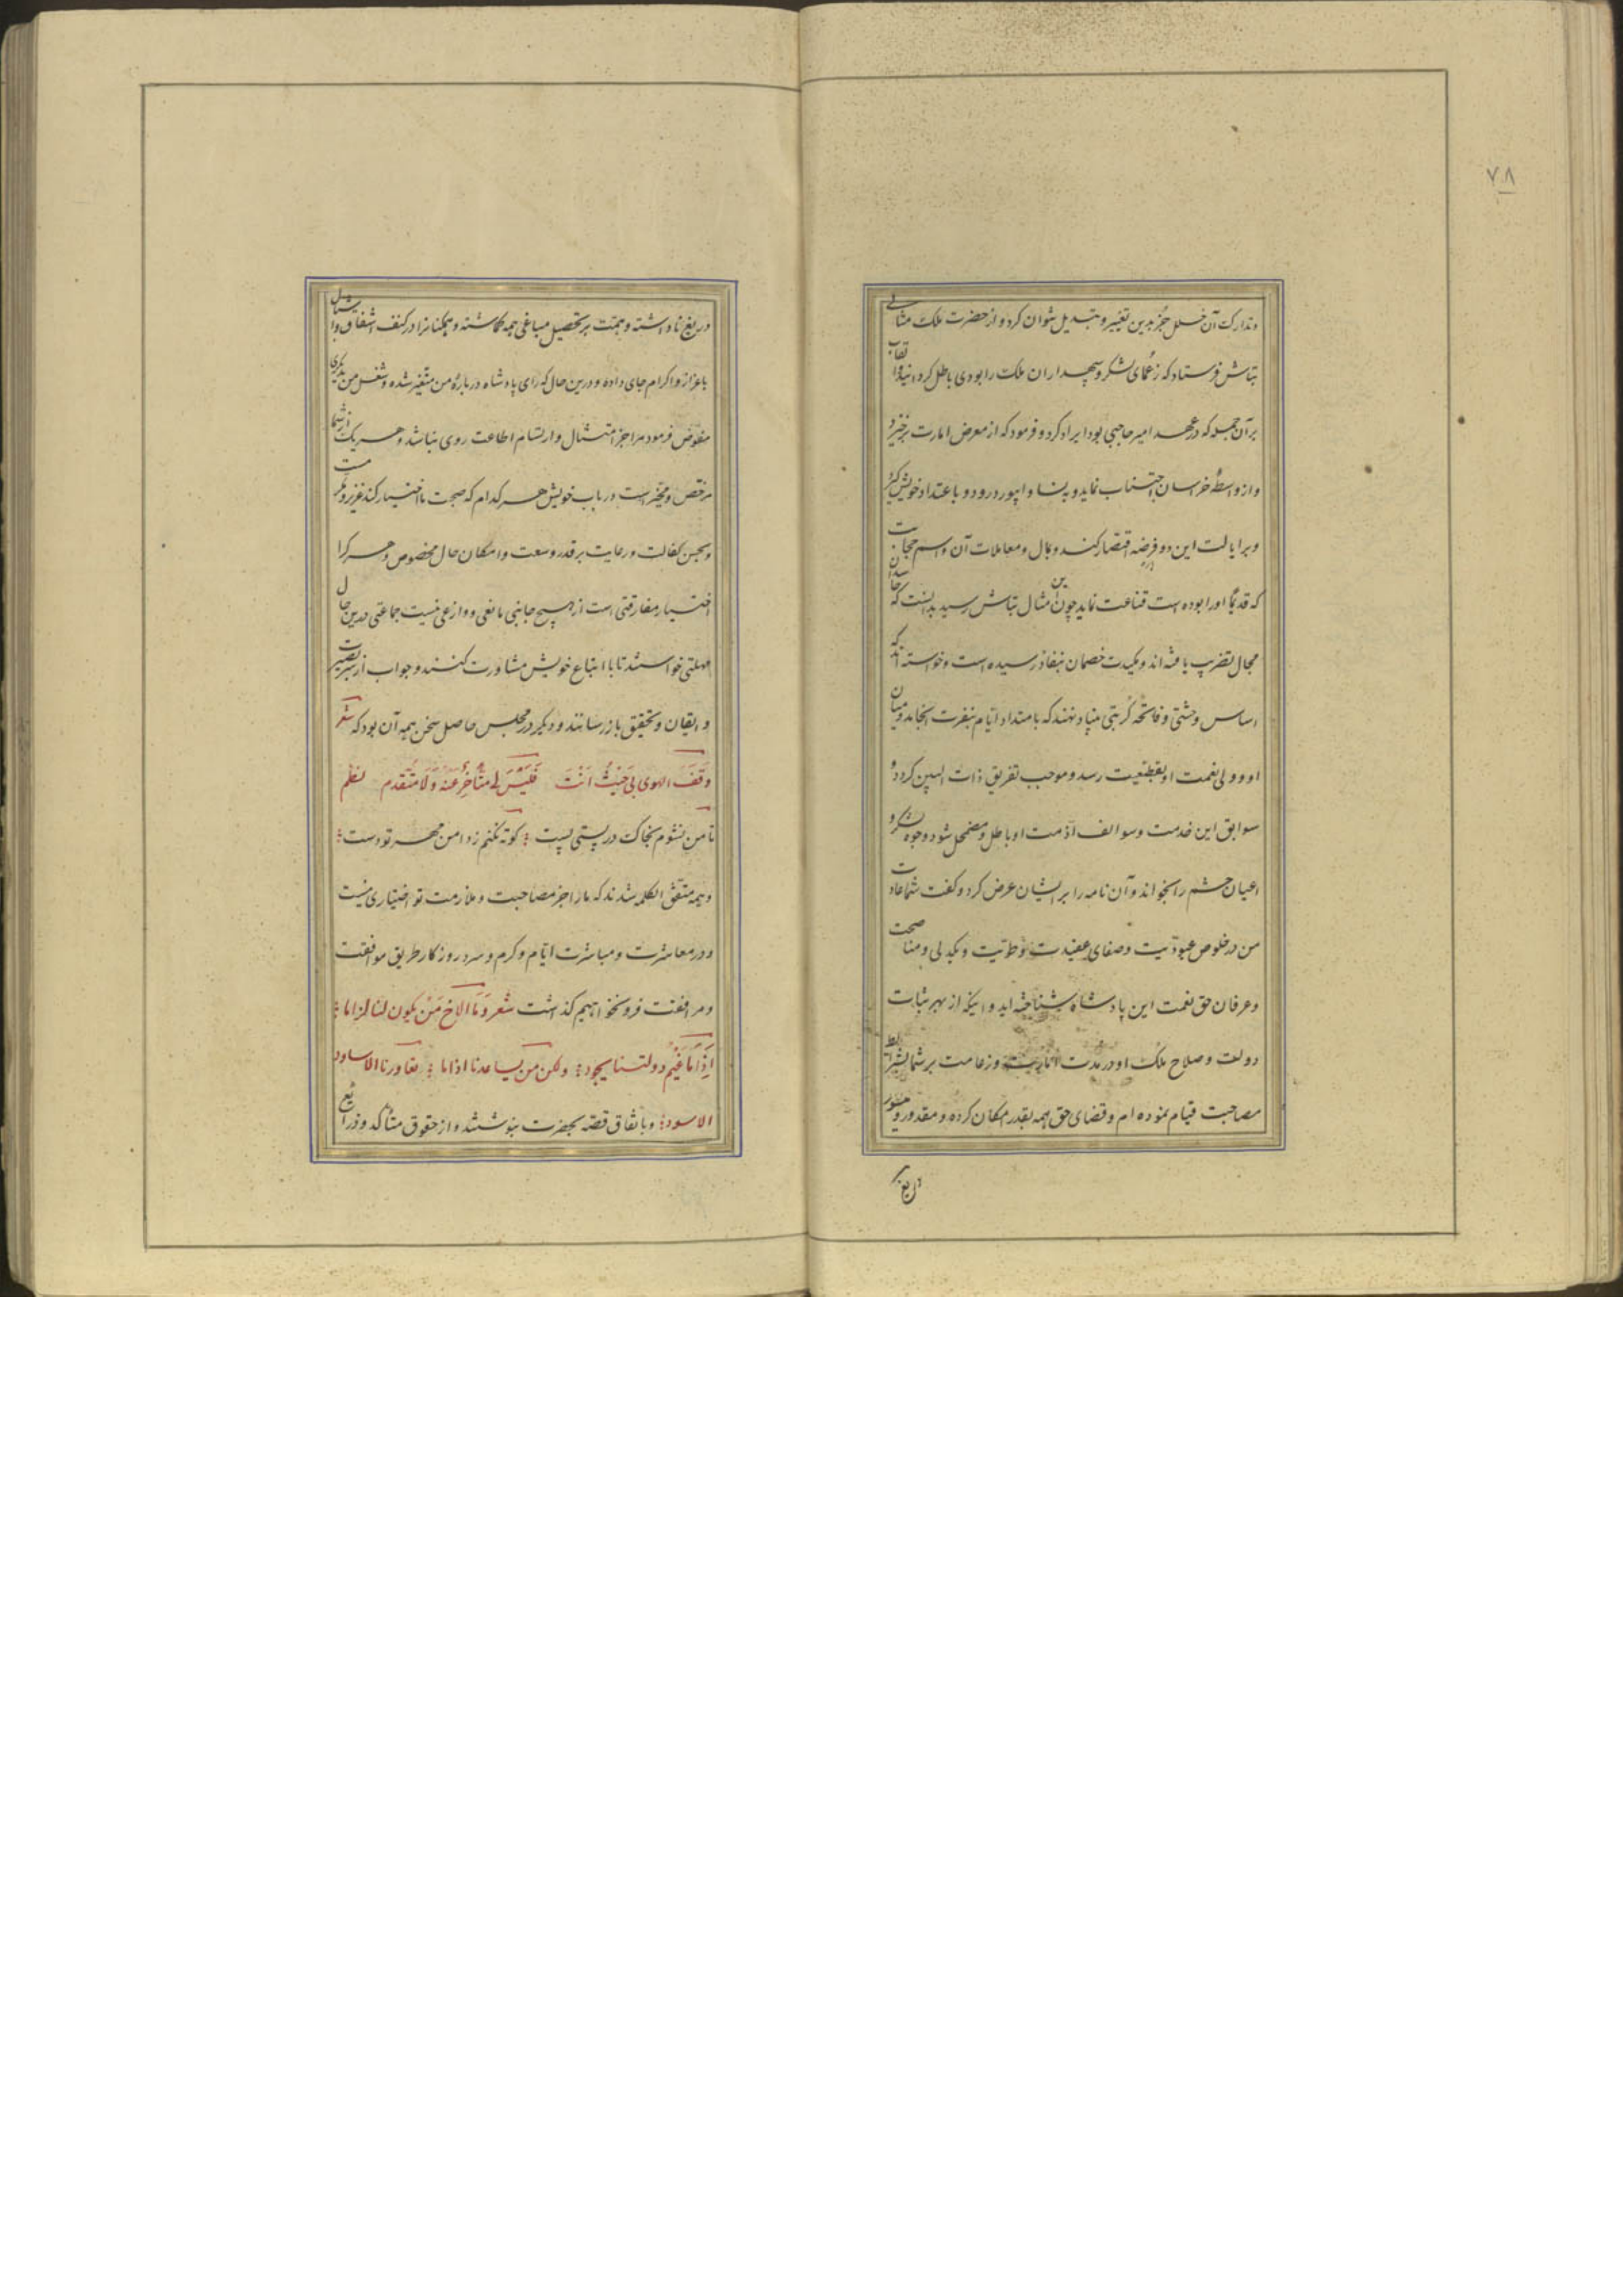 ۷۸
و تدارک آن خلل جز بدین تغییر و تبدیل نتوان کرد و از حضرت ملک مثالی
بتاش فرستاد که زعمای لشکر و سپهداران ملک را بودی باطل کرد
بر آن جمله که در عهد امیر حاجبی بود ایراد کرد و فرمود که از معرض امارت برخیزد
و از واسطهٔ خراسان اجتناب نماید و بنسا و ابیورد رود و باعتداد خویش
و بر ایالت این دو فرضه اقتصار کند و بمال و معاملات آن و اسم حجابت
که قدیما او را بوده است قناعت نماید چون این مثال بتاش رسید بدانست که حاسدان
مجال تضریب یافته‌اند و مکیدت خصمان بنفاذ رسیده است و خواسته‌اند که
اساس وحشتی و فاتحهٔ کربتی بنیاد نهند که بامتداد ایام بنفرت انجامد و میان
او و ولی نعمت او بقطیعت رسد و موجب تفریق ذات البین گردد و
سوابق این خدمت و سوالف اذمت او باطل و مضمحل شود وجوه لشکر و
اعیان حشم را بخواند و آن نامه را بر ایشان عرض کرد و گفت شما عادت
من در خلوص عبودیت و صفای عقیدت و طویت و یکدلی و مناصحت
و عرفان حق نعمت این پادشاه شناخته‌اید و اینکه از بهر ثبات
دولت و صلاح ملک او در مدت امارت و زعامت بر شما بشرایط
مصاحبت قیام نموده‌ام و قضای حق همه بقدر امکان کرده و مقدور و میسور
دریغ
دریغ ناداشته و همت بر تحصیل مباغی همه گماشته و همکنانرا در کنف اشفاق و اشبال
باعزاز و اکرام جای داده و درین حال که رای پادشاه در بارهٔ من متغیر شده و شغل من بدیگری
مفوض فرمود مرا جز امتثال و ارتسام اطاعت روی نباشد و هر یک از شما
مرخص و مخیر است در باب خویش هر کدام که صحبت ما اختیار کند عزیز و مکرمست
و بحسن کفالت و رعایت بر قدر وسعت و امکان حال مخصوص و هر کرا
اختیار مفارقتی است از هیچ جانبی مانعی و وازعی نیست جماعتی درین حال
مهلتی خواستند تا با اتباع خویش مشاورت کنند و جواب از سر بصیرت
و ایقان و تحقیق باز رسانند و دیگر در مجلس حاصل سخن همه آن بود که شعر
وَقَفَ الهوی بی حَیْثُ اَنْتَ فَلَیْسَ لی متاخِرٌ عَنْهُ وَلا مُتَقدم نظم
تا من نشوم بخاک در پستی پست ؛ کوته نکنم ز دامن مهر تو دست ؛
و همه متفق الکلمه شدند که ما را جز مصاحبت و ملازمت تو اختیاری نیست
و در معاشرت و مباشرت ایام و گرم و سرد روزگار طریق موافقت
و مرافقت فرو نخواهیم گذاشت شعر وَمَا الاخ مَنْ یکون لنا لزاما ؛
اِذَا مَا غَیْم دولتنا یجود ؛ ولکن من یساعدنا اذا ما ؛ تعاورنا الاساود
الاسود ؛ و باتفاق قصه بحضرت بنوشتند و از حقوق متأکد و ذرائع